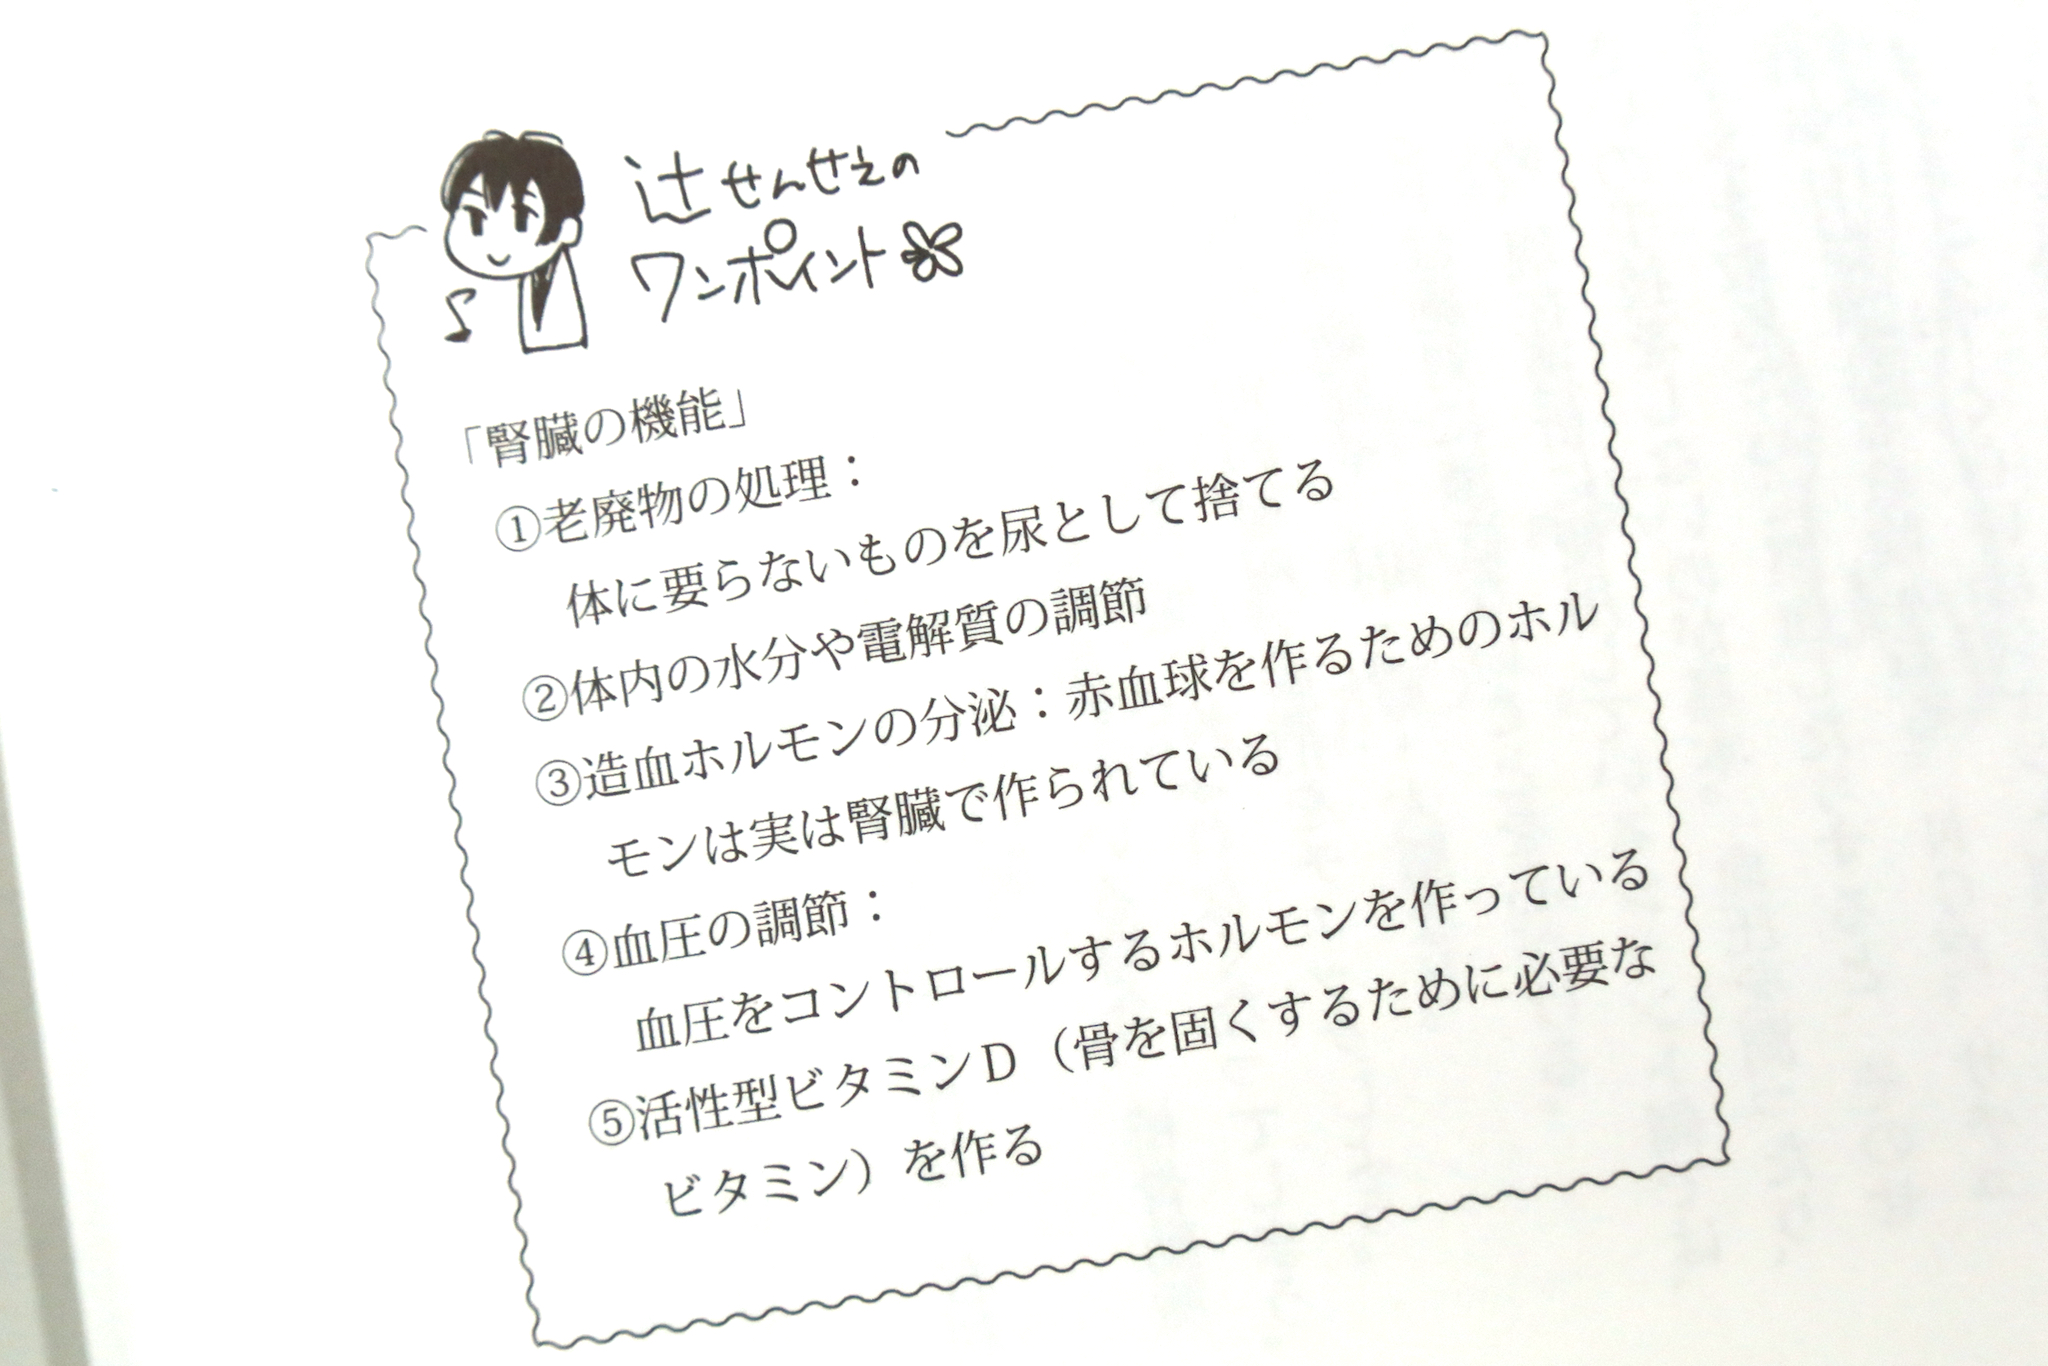 辻せんせえの
ワンポイント
「腎臓の機能」
①老廃物の処理：
体に要らないものを尿として捨てる
②体内の水分や電解質の調節
③造血ホルモンの分泌：赤血球を作るためのホル
モンは実は腎臓で作られている
④血圧の調節：
血圧をコントロールするホルモンを作っている
⑤活性型ビタミンＤ（骨を固くするために必要な
ビタミン）を作る